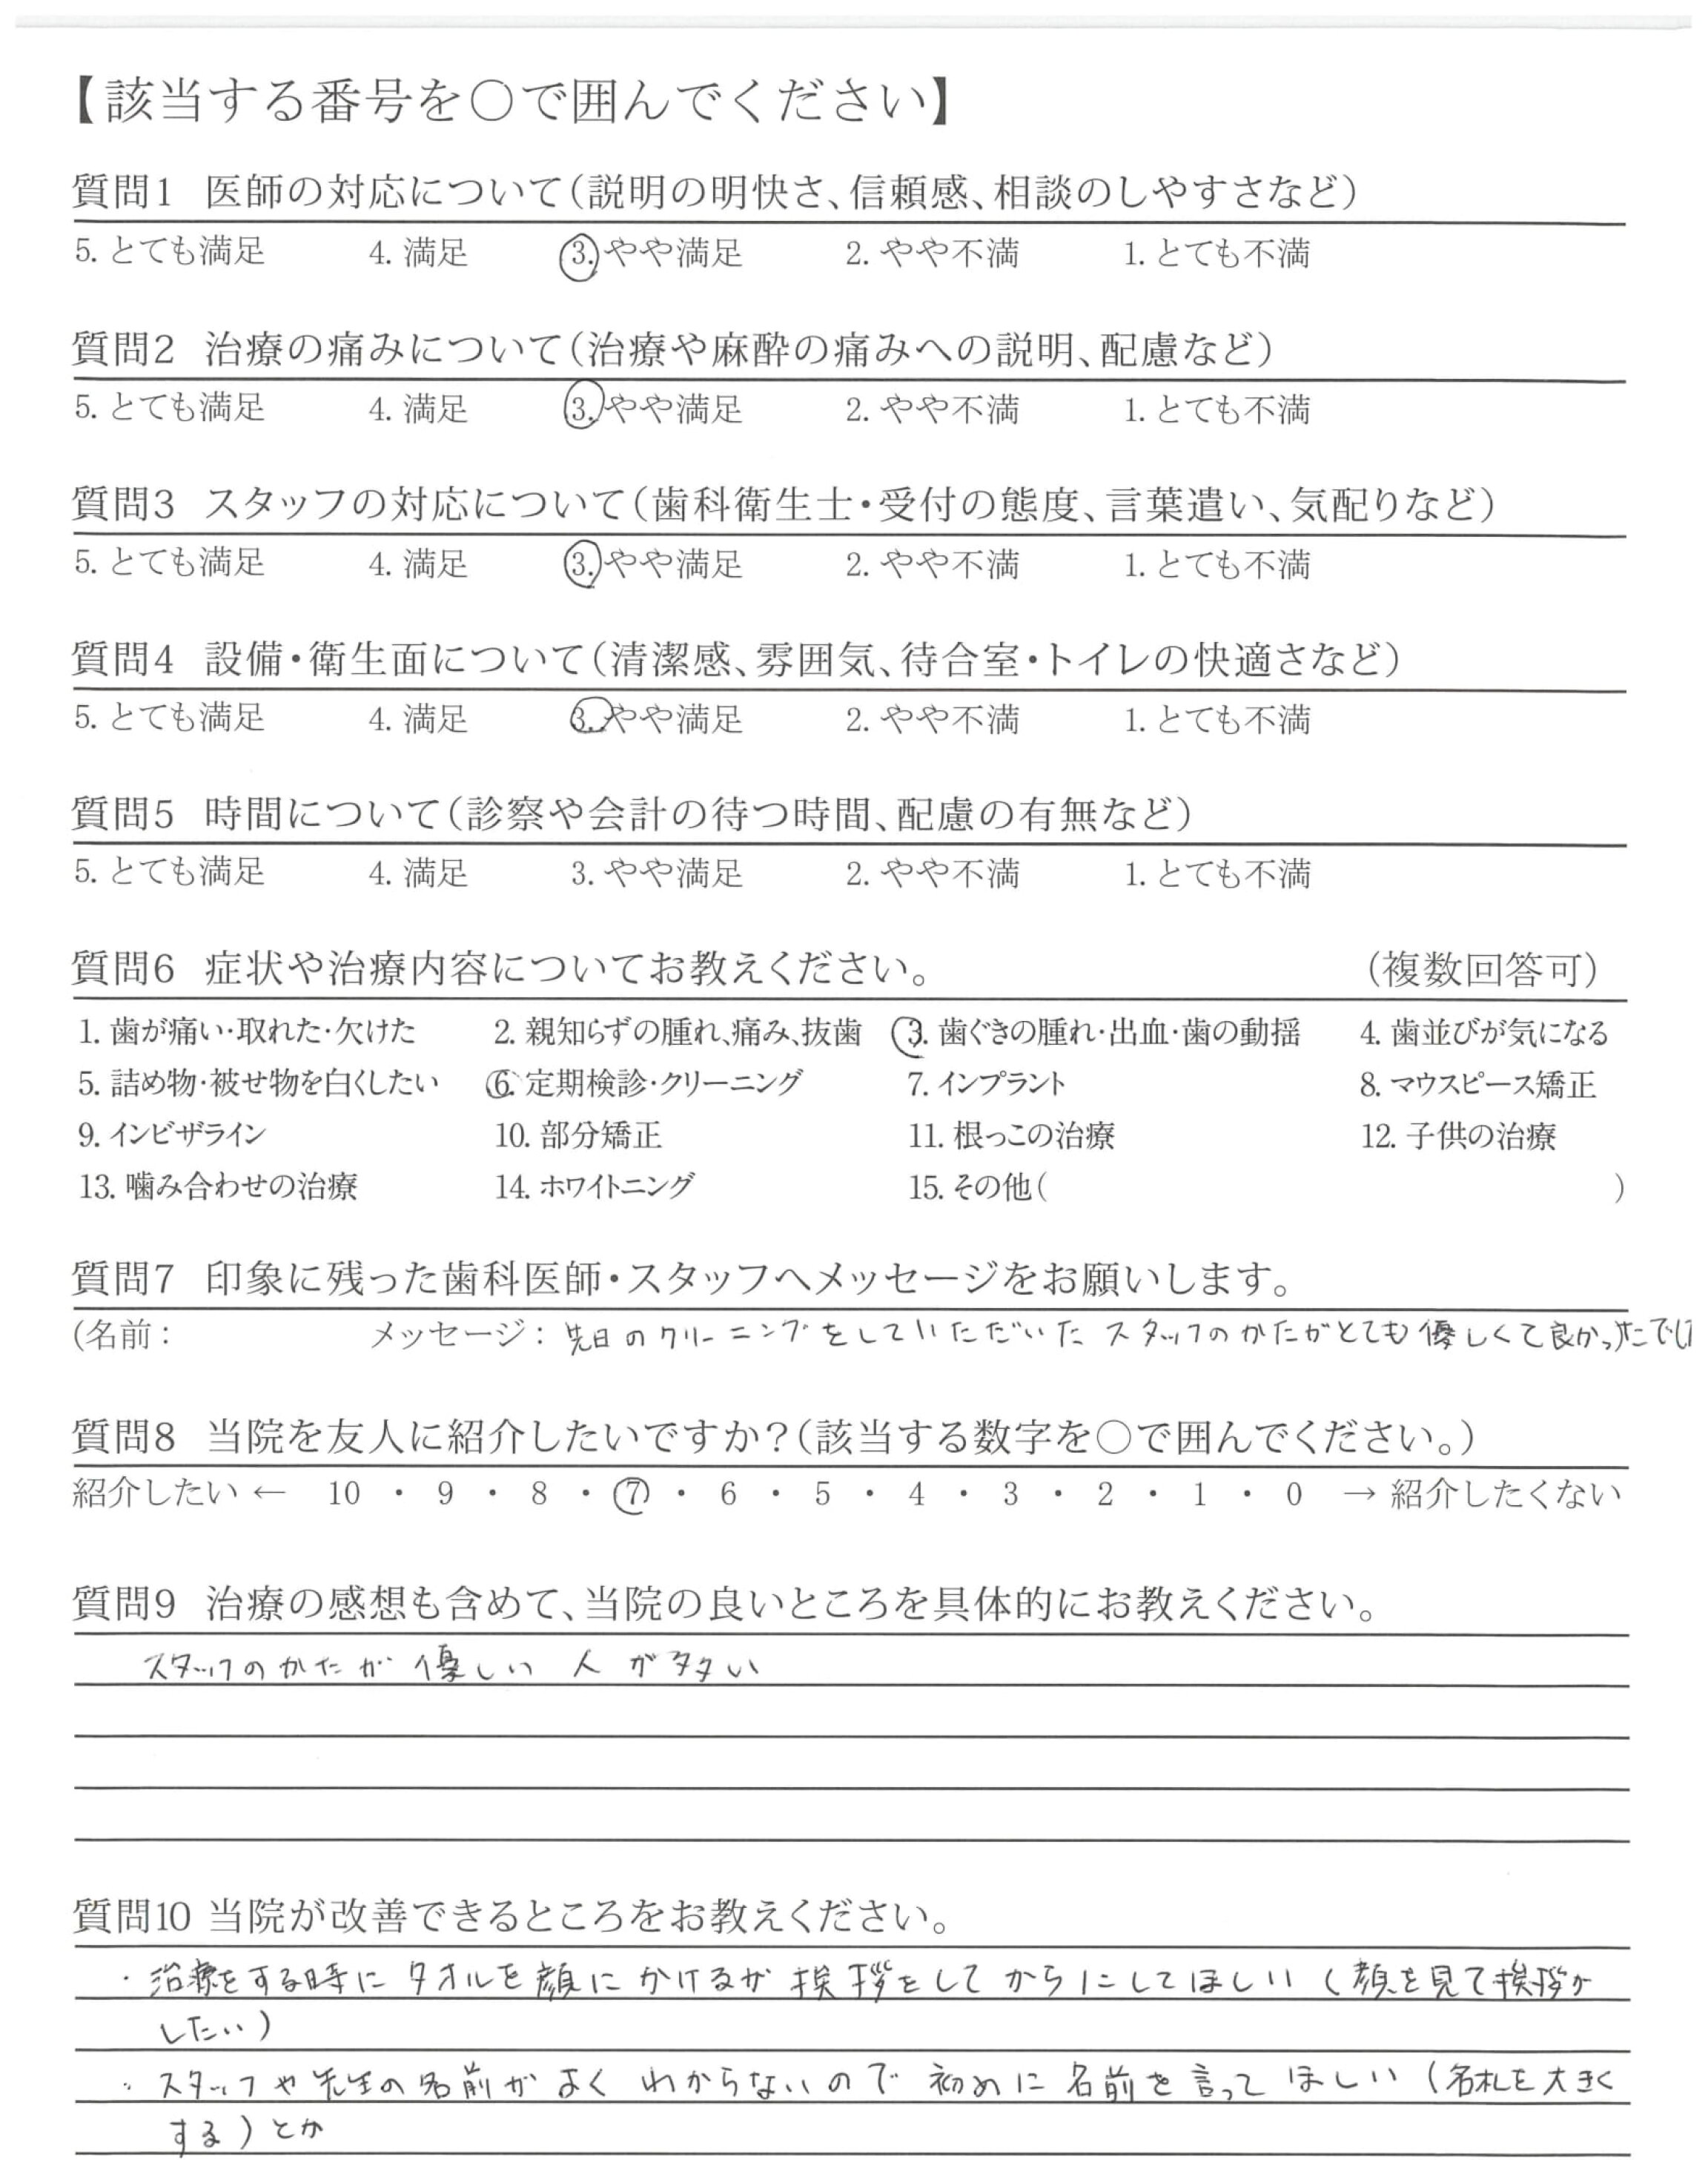 【該当する番号を○で囲んでください】
質問1 医師の対応について(説明の明快さ、信頼感、相談のしやすさなど)
5. とても満足 4. 満足 3. やや満足 2. やや不満 1. とても不満
質問2 治療の痛みについて(治療や麻酔の痛みへの説明、配慮など)
5. とても満足 4. 満足 3. やや満足 2. やや不満 1. とても不満
質問3 スタッフの対応について(歯科衛生士・受付の態度、言葉遣い、気配りなど)
5. とても満足 4. 満足 3. やや満足 2. やや不満 1. とても不満
質問4 設備・衛生面について(清潔感、雰囲気、待合室・トイレの快適さなど)
5. とても満足 4. 満足 3. やや満足 2. やや不満 1. とても不満
質問5 時間について(診察や会計の待つ時間、配慮の有無など)
5. とても満足 4. 満足 3. やや満足 2. やや不満 1. とても不満
質問6 症状や治療内容についてお教えください。 (複数回答可)
1. 歯が痛い・取れた・欠けた 2. 親知らずの腫れ、痛み、抜歯 3. 歯ぐきの腫れ・出血・歯の動揺 4. 歯並びが気になる
5. 詰め物・被せ物を白くしたい 6. 定期検診・クリーニング 7. インプラント 8. マウスピース矯正
9. インビザライン 10. 部分矯正 11. 根っこの治療 12. 子供の治療
13. 噛み合わせの治療 14. ホワイトニング 15. その他( )
質問7 印象に残った歯科医師・スタッフへメッセージをお願いします。
(名前: メッセージ: 先日のクリーニングをしていただいた スタッフのかたがとても優しくて良かったでし
質問8 当院を友人に紹介したいですか?(該当する数字を○で囲んでください。)
紹介したい ← 10 ・ 9 ・ 8 ・ 7 ・ 6 ・ 5 ・ 4 ・ 3 ・ 2 ・ 1 ・ 0 → 紹介したくない
質問9 治療の感想も含めて、当院の良いところを具体的にお教えください。
スタッフのかたが 優しい 人 が多い
質問10 当院が改善できるところをお教えください。
・治療をする時に タオルを顔に かけるが 挨拶をして からにしてほしい (顔を見て挨拶が
したい)
・スタッフや先生の名前が よく わからないので 初めに 名前を言って ほしい (名札を大きく
する)とか